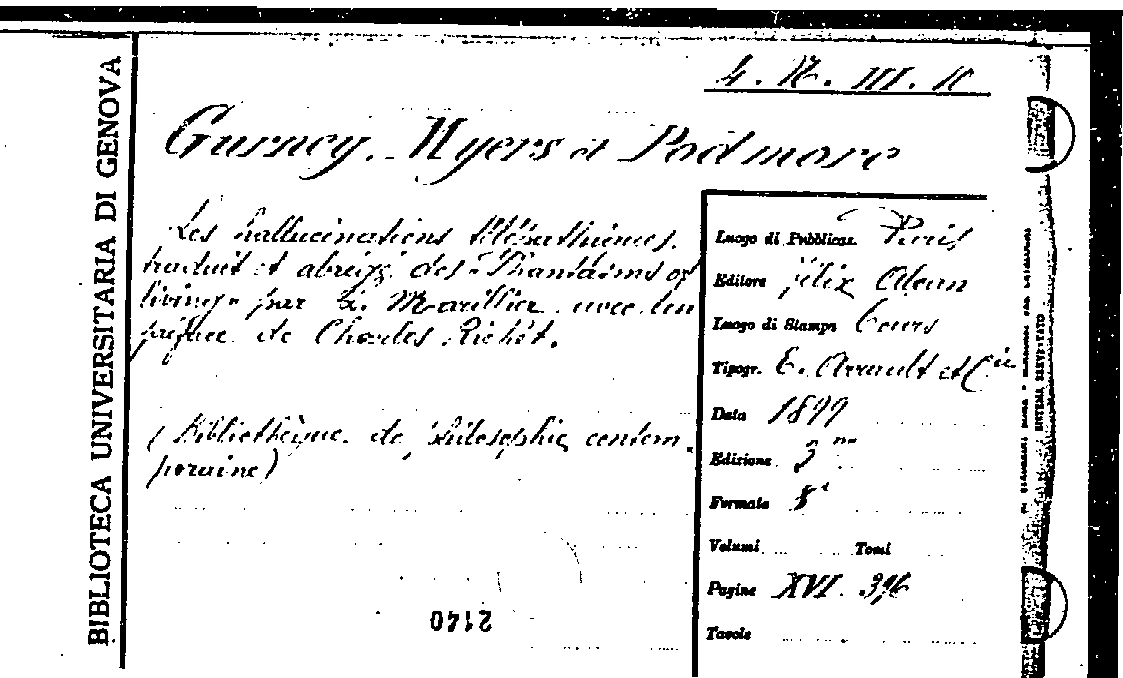 BIBLIOTECA UNIVERSITARIA DI GENOVA
4. R. III. 10
Gurney, Myers et Podmore
Les hallucinations télépathiques,
traduit et abrégé des "Phantasms of
living" par L. Marillier avec un
préface de Charles Richet.
(Bibliothèque de philosophie contem-
poraine)
2140
Luogo di Pubblicaz. Paris
Editore Félix Alcan
Luogo di Stampa Tours
Tipogr. E. Arrault et Cie
Data 1899
Edizione 3me
Formato 8°
Volumi Tomi
Pagine XVI. 396
Tavole